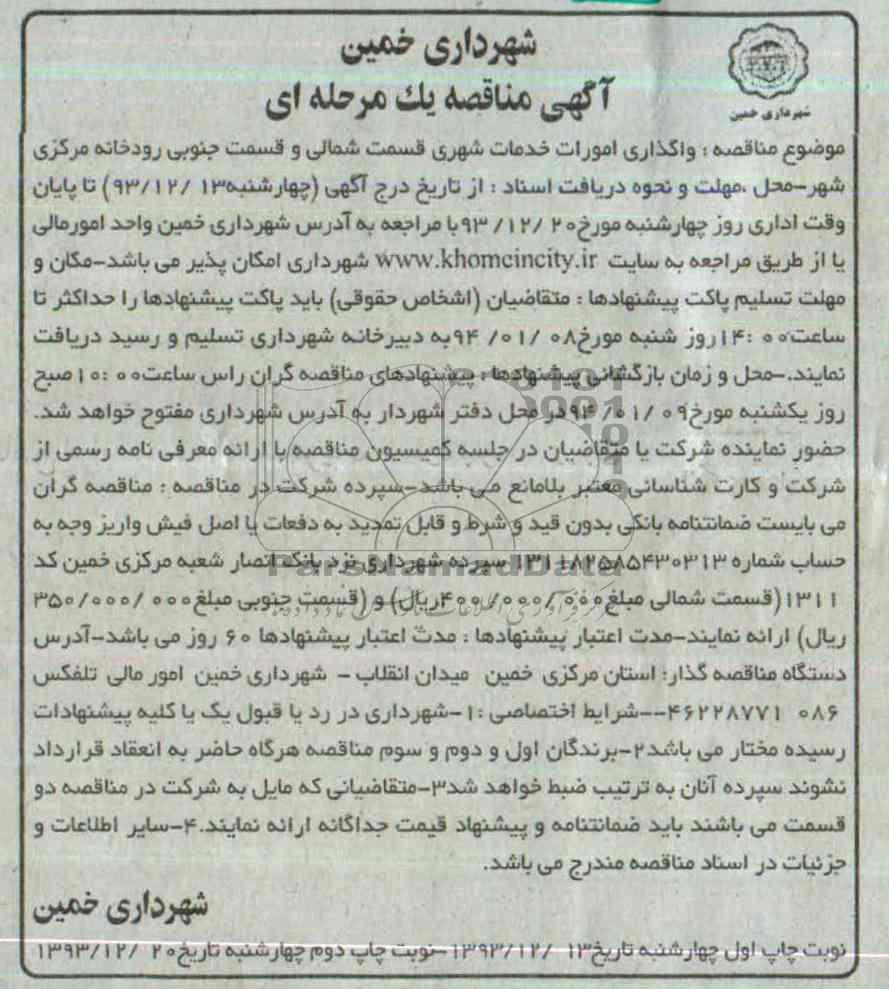 شهرداری خمین
آگهی مناقصه یك مرحله ای
شهرداری خمین
موضوع مناقصه : واگذاری امورات خدمات شهری قسمت شمالی و قسمت جنوبی رودخانه مرکزی
شهر-محل ،مهلت و نحوه دریافت اسناد : از تاریخ درج آگهی (چهارشنبه۱۳ /۹۳/۱۲) تا پایان
وقت اداری روز چهارشنبه مورخ۲۰ /۱۲ /۹۳با مراجعه به آدرس شهرداری خمین واحد امورمالی
یا از طریق مراجعه به سایت www.khomeincity.ir شهرداری امکان پذیر می باشد-مکان و
مهلت تسلیم پاکت پیشنهادها : متقاضیان (اشخاص حقوقی) باید پاکت پیشنهادها را حداکثر تا
ساعت۰۰ :۱۴روز شنبه مورخ۰۸ /۰۱ /۹۴به دبیرخانه شهرداری تسلیم و رسید دریافت
نمایند.-محل و زمان بازگشائی پیشنهادها : پیشنهادهای مناقصه گران راس ساعت۰۰ :۱۰صبح
روز یکشنبه مورخ۰۹ /۰۱ /۹۴در محل دفتر شهردار به آدرس شهرداری مفتوح خواهد شد.
حضور نماینده شرکت یا متقاضیان در جلسه کمیسیون مناقصه با ارائه معرفی نامه رسمی از
شرکت و کارت شناسائی معتبر بلامانع می باشد-سپرده شرکت در مناقصه : مناقصه گران
می بایست ضمانتنامه بانکی بدون قید و شرط و قابل تمدید به دفعات یا اصل فیش واریز وجه به
حساب شماره ۱۳۱۱۸۲۵۸۵۴۳۰۳۱۳ سپرده شهرداری نزد بانک انصار شعبه مرکزی خمین کد
۱۳۱۱(قسمت شمالی مبلغ۴۰۰/۰۰۰/۰۰۰ریال) و (قسمت جنوبی مبلغ۳۵۰/۰۰۰/۰۰۰
ریال) ارائه نمایند-مدت اعتبار پیشنهادها : مدت اعتبار پیشنهادها ۶۰ روز می باشد-آدرس
دستگاه مناقصه گذار: استان مرکزی خمین میدان انقلاب - شهرداری خمین امور مالی تلفکس
۰۸۶ ۴۶۲۲۸۷۷۱--شرایط اختصاصی :۱-شهرداری در رد یا قبول یک یا کلیه پیشنهادات
رسیده مختار می باشد۲-برندگان اول و دوم و سوم مناقصه هرگاه حاضر به انعقاد قرارداد
نشوند سپرده آنان به ترتیب ضبط خواهد شد۳-متقاضیانی که مایل به شرکت در مناقصه دو
قسمت می باشند باید ضمانتنامه و پیشنهاد قیمت جداگانه ارائه نمایند.۴-سایر اطلاعات و
جزئیات در اسناد مناقصه مندرج می باشد.
شهرداری خمین
نوبت چاپ اول چهارشنبه تاریخ۱۳ /۱۳۹۳/۱۲-نوبت چاپ دوم چهارشنبه تاریخ۲۰ /۱۳۹۳/۱۲
ParsNamadData